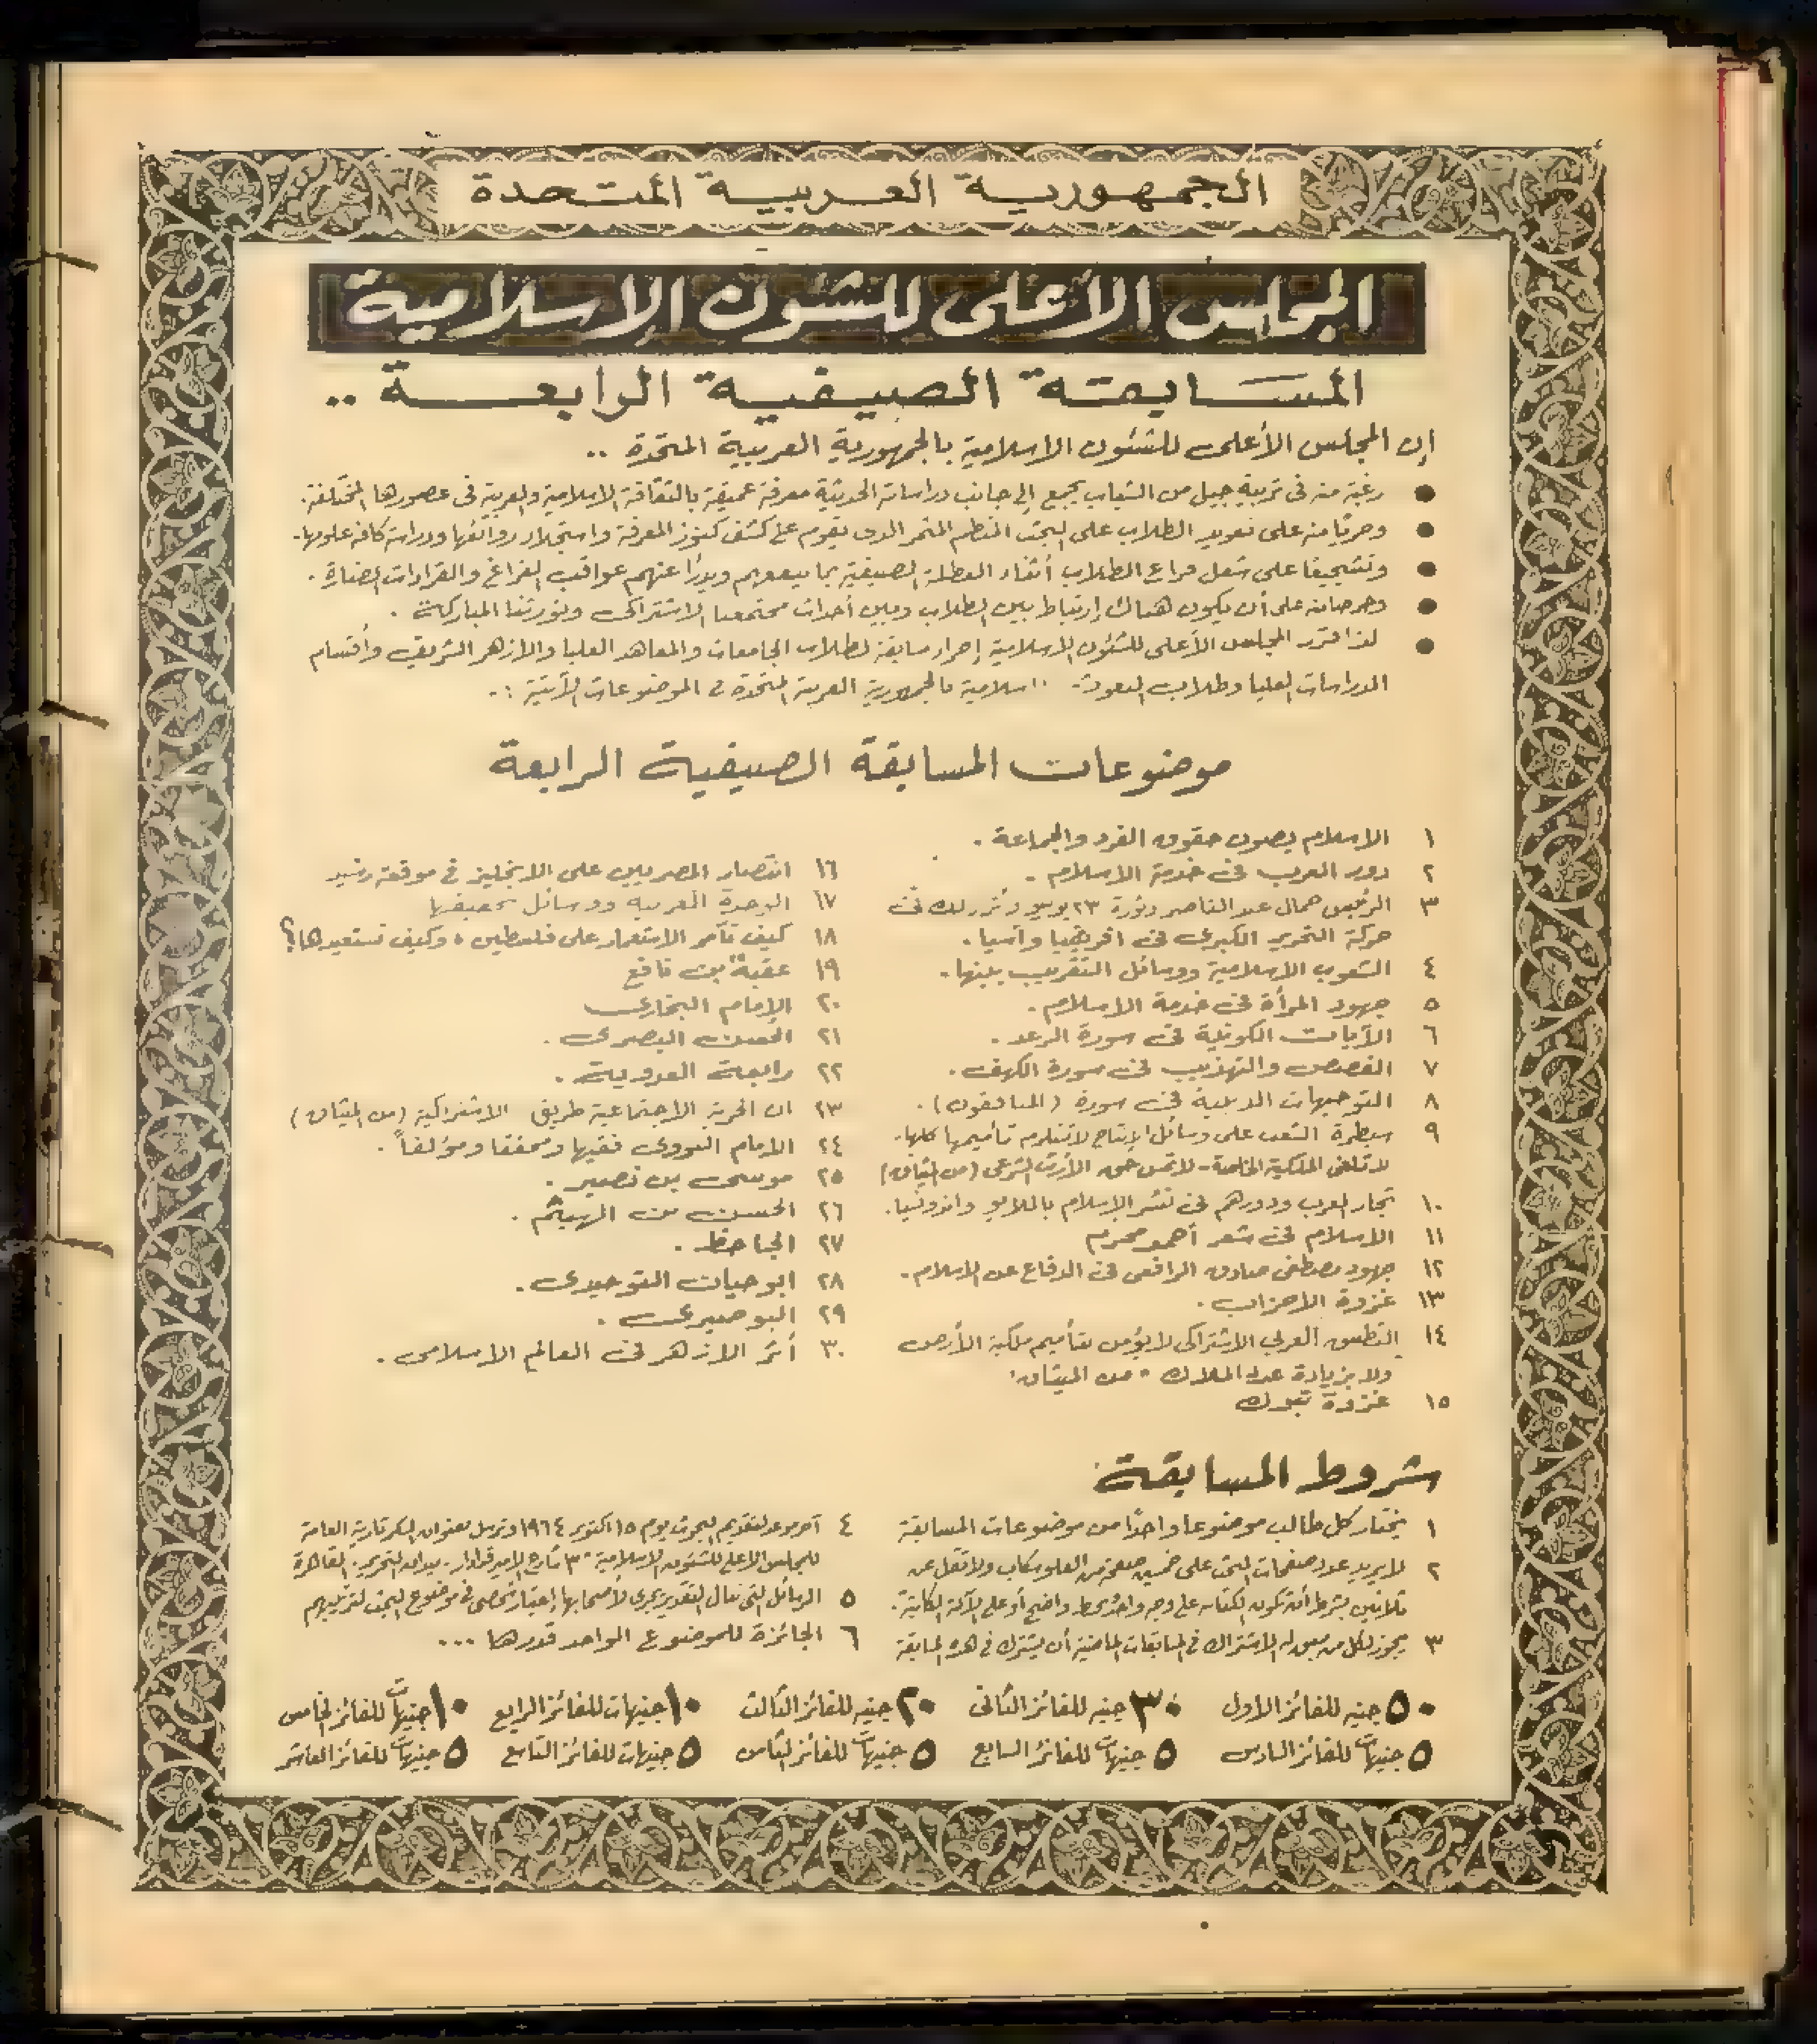 الجمهورية العربية المتحدة
المجلس الأعلى للشئون الإسلامية
المسابقة الصيفية الرابعة ..
إن المجلس الأعلى للشئون الاسلامية بالجمهورية العربية المتحدة ..
● رغبة منه فى تربية جيل من الشباب يجمع إلى جانب دراساته الحديثة معرفة عميقة بالثقافة الاسلامية والعربية فى عصورها المختلفة .
● وحرصا منه على تعويد الطلاب على البحث المنظم المثمر الذى يقوم على كشف كنوز المعرفة واستجلاء روائعها ودراسة كافة علومها .
● وتشجيعا على شغل فراغ الطلاب أثناء العطلة الصيفية بما ينفعهم ويدرأ عنهم عواقب الفراغ والقراءات الضارة .
● وحرصا منه على أن يكون هناك إرتباط بين الطلاب وبين أحداث مجتمعنا الاشتراكى وثورتنا المباركة .
● لذا قرر المجلس الأعلى للشئون الاسلامية إجراء مسابقة لطلاب الجامعات والمعاهد العليا والازهر الشريف وأقسام
الدراسات العليا وطلاب البعوث اسلامية بالجمهورية العربية المتحدة فى الموضوعات الآتية :-
موضوعات المسابقة الصيفية الرابعة
١ الاسلام يصون حقوق الفرد والجماعة .
٢ دور العرب فى خدمة الاسلام .
٣ الرئيس جمال عبد الناصر وثورة ٢٣ يوليو وأثر ذلك فى
حركة التحرير الكبرى فى افريقيا وآسيا .
٤ الشعوب الاسلامية ووسائل التقريب بينها .
٥ جهود المرأة فى خدمة الاسلام .
٦ الآيات الكونية فى سورة الرعد .
٧ القصص والتهذيب فى سورة الكهف .
٨ التوجيهات الدينية فى سورة (المنافقون) .
٩ سيطرة الشعب على وسائل الإنتاج لا تستلزم تأميمها كلها .
لا تلغى الملكية الخاصة - لا تمس حق الأرث الشرعى (من الميثاق)
١٠ تجار العرب ودورهم فى نشر الإسلام بالملايو واندونيسيا .
١١ الاسلام فى شعر أحمد محرم
١٢ جهود مصطفى صادق الرافعى فى الدفاع عن الاسلام .
١٣ غزوة الاحزاب .
١٤ التطبيق العربى الاشتراكى لا يؤمن بتأميم ملكية الأرض
ولا بزيادة عدد الملاك "من الميثاق"
١٥ غزوة تبوك
١٦ انتصار المصريين على الانجليز فى موقعة رشيد
١٧ الوحدة العربية ووسائل تحقيقها
١٨ كيف تآمر الاستعمار على فلسطين ، وكيف نستعيدها ؟
١٩ عقبة بن نافع
٢٠ الإمام البخارى
٢١ الحسن البصرى .
٢٢ رابعة العدوية .
٢٣ ان الحرية الاجتماعية طريق الاشتراكية (من الميثاق)
٢٤ الامام النووى فقيها ومحققا ومؤلفاً .
٢٥ موسى بن نصير .
٢٦ الحسن بن الهيثم .
٢٧ الجاحظ .
٢٨ ابو حيان التوحيدى .
٢٩ البوصيرى .
٣٠ أثر الازهر فى العالم الاسلامى .
شروط المسابقة
١ يختار كل طالب موضوعا واحدًا من موضوعات المسابقة
٢ لا يزيد عدد صفحات البحث على خمسين صفحة من الفلوسكاب ولا تقل عن
ثلاثين بشرط أن تكون الكتابة على وجه واحد بخط واضح أو على الآلة الكاتبة .
٣ يجوز لكل من سبق له الاشتراك فى المسابقات الماضية أن يشترك فى هذه المسابقة
٤ آخر موعد لتقديم البحوث يوم ١٥ اكتوبر ١٩٦٤ وترسل بعنوان السكرتارية العامة
للمجلس الاعلى للشئون الاسلامية ٣ شارع الامير قدادار . ميدان التحرير . القاهرة
٥ الرسائل التى تنال التقدير يجرى لأصحابها إختبار شخصى فى موضوع البحث لترتيبهم
٦ الجائزة للموضوع الواحد قدرها ...
٥٠ جنيه للفائز الاول ٣٠ جنيه للفائز الثانى ٢٠ جنيه للفائز الثالث ١٠ جنيهات للفائز الرابع ١٠ جنيهات للفائز الخامس
٥ جنيهات للفائز السادس ٥ جنيهات للفائز السابع ٥ جنيهات للفائز الثامن ٥ جنيهات للفائز التاسع ٥ جنيهات للفائز العاشر